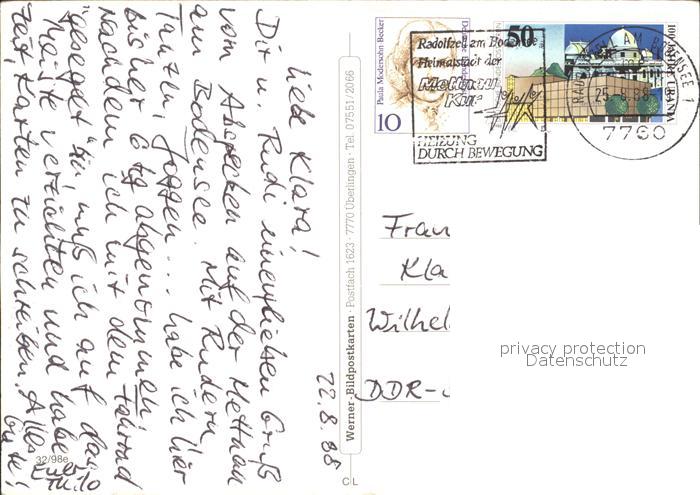 22.8.88
Liebe Klara!
Dir u. Rudi einen lieben Gruß
vom Abspecken auf der Mettnau
am Bodensee. Mit Rudern,
Tanzen, Joggen ... habe ich hier
bisher 6 kg abgenommen!
Nachdem ich mit dem Fahrrad
bin, muß ich auf das
Meiste verzichten und habe
Zeit, Karten zu schreiben. Alles
Gute!
Euer
32/98e
Werner-Bildpostkarten · Postfach 1623 · 7770 Überlingen · Tel. 07551/2066
C L
Paula Modersohn-Becker
Deutsche Bundespost
10
50
Radolfzell am Bodensee
Heimatstadt der
Mettnau
Kur
HEILUNG
DURCH BEWEGUNG
7760
Frau
Kla
Wilhel
DDR-
privacy protection
Datenschutz